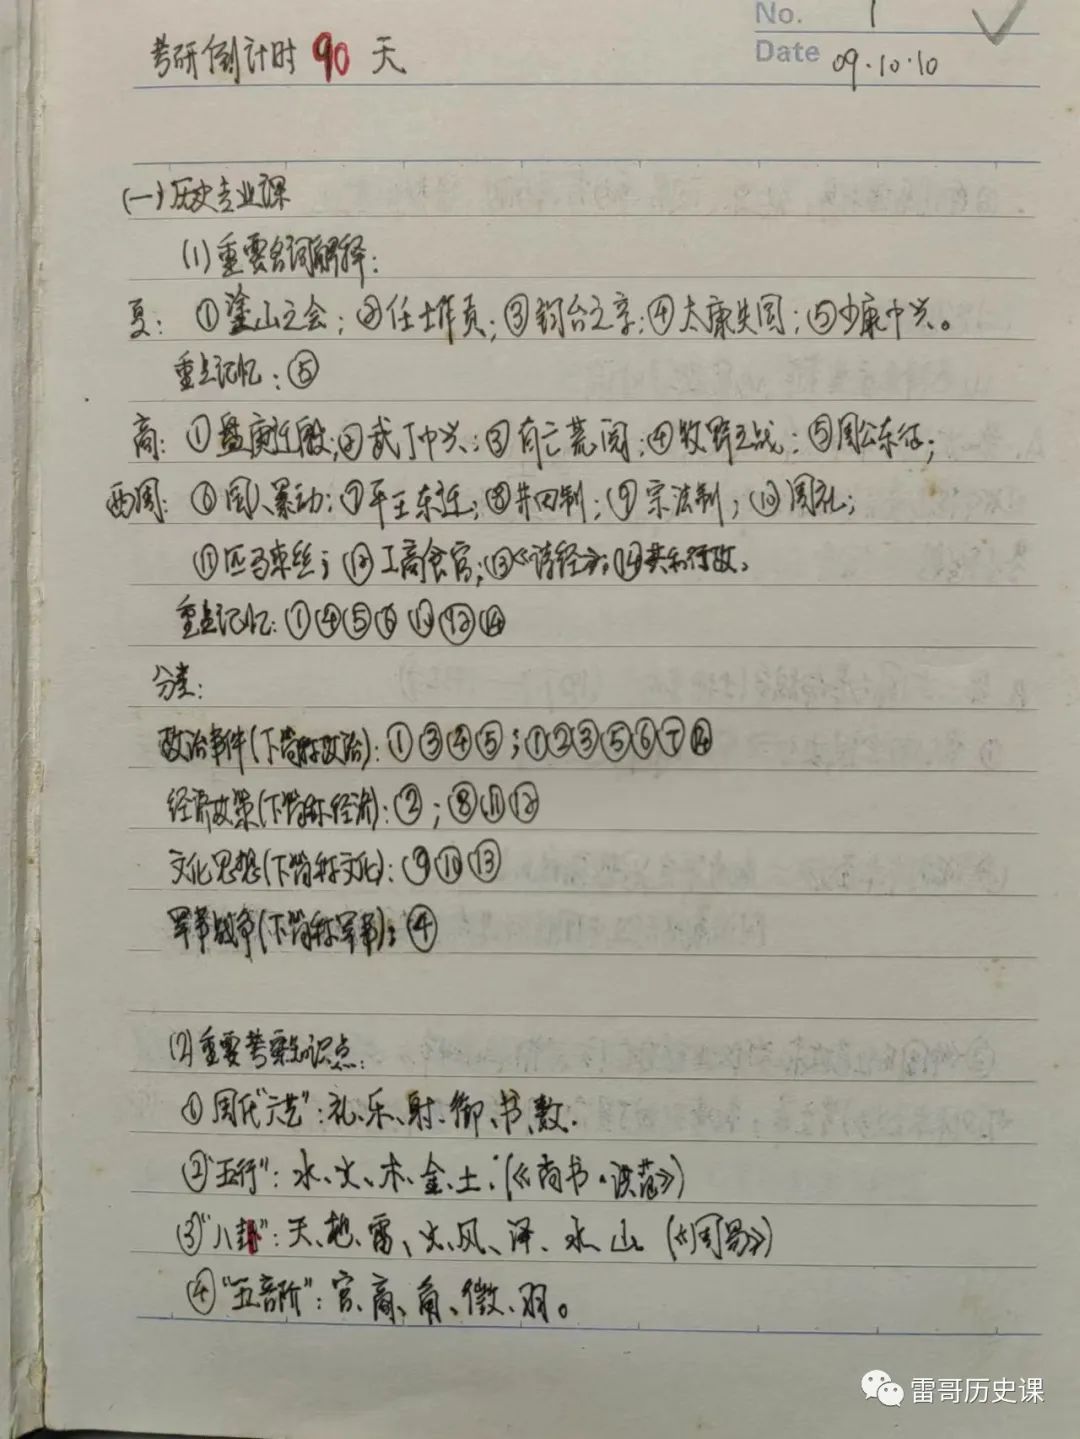 No. 1
考研倒计时 90 天
Date 09.10.10
(一)历史专业课
(1)重要名词解释:
夏: ①塗山之会; ②任土作贡; ③钧台之享; ④太康失国; ⑤少康中兴。
重点记忆: ⑤
商: ①盘庚迁殷; ②武丁中兴; ③有亡荒阅; ④牧野之战; ⑤周公东征;
西周: ⑥国人暴动; ⑦平王东迁; ⑧井田制; ⑨宗法制; ⑩周礼;
⑪匹马束丝; ⑫工商食官; ⑬《诗经》; ⑭共和行政。
重点记忆: ①④⑤⑥ ⑫⑭
分类:
政治事件(下简称政治): ①③④⑤; ①②③⑤⑥⑦⑭
经济政策(下简称经济): ②; ⑧⑪⑫
文化思想(下简称文化): ⑨⑩⑬
军事战争(下简称军事): ④
(2)重要考察知识点:
①周代“六艺”: 礼、乐、射、御、书、数.
②“五行”: 水、火、木、金、土; (《尚书·洪范》)
③“八卦”: 天、地、雷、火、风、泽、水、山 (《周易》)
④“五音阶”: 宫、商、角、徵、羽。
雷哥历史课